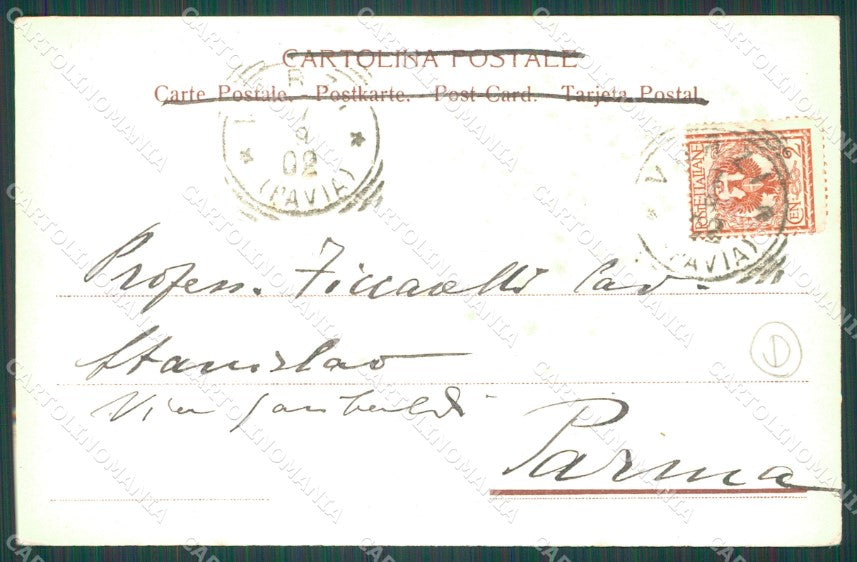 CARTOLINA POSTALE
Carte Postale. Postkarte. Post-Card. Tarjeta Postal.
02
(PAVIA)
POSTE ITALIANE
CEN 2
(PAVIA)
Profess. Ficcarelli Cav.
Stanislao
Via Garibaldi
Parma
CARTOLINOMANIA